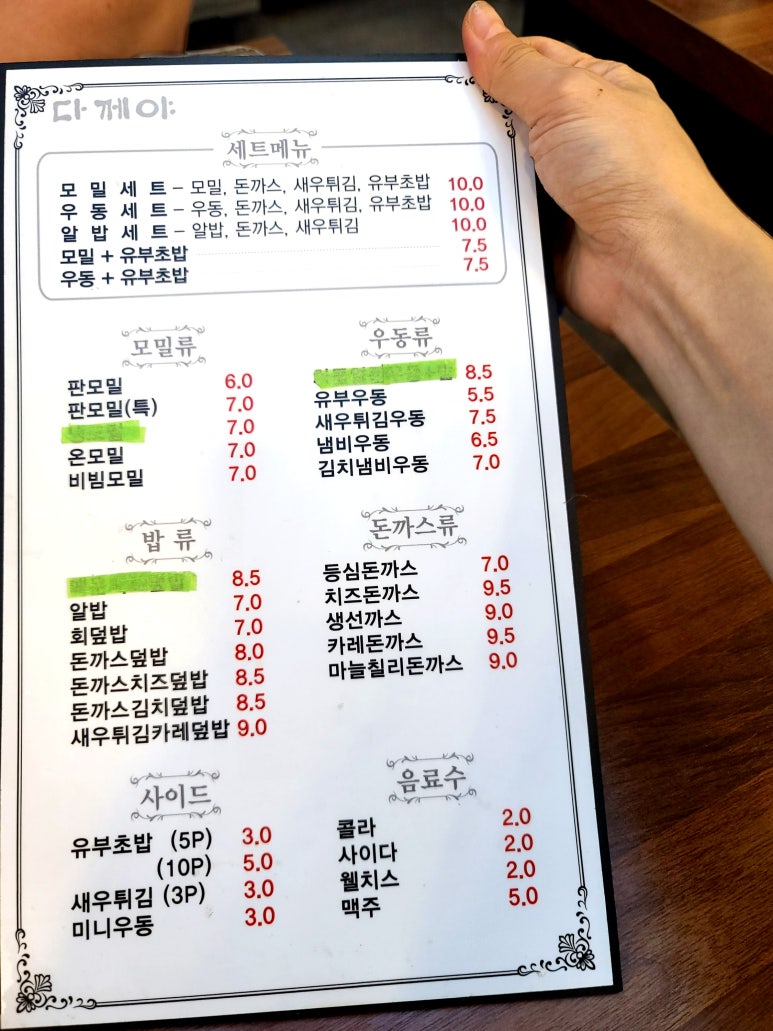 다께야
세트메뉴
모 밀 세 트 – 모밀, 돈까스, 새우튀김, 유부초밥 10.0
우 동 세 트 – 우동, 돈까스, 새우튀김, 유부초밥 10.0
알 밥 세 트 – 알밥, 돈까스, 새우튀김 10.0
모밀 + 유부초밥 7.5
우동 + 유부초밥 7.5
모밀류
판모밀 6.0
판모밀(특) 7.0
7.0
온모밀 7.0
비빔모밀 7.0
우동류
8.5
유부우동 5.5
새우튀김우동 7.5
냄비우동 6.5
김치냄비우동 7.0
밥 류
8.5
알밥 7.0
회덮밥 7.0
돈까스덮밥 8.0
돈까스치즈덮밥 8.5
돈까스김치덮밥 8.5
새우튀김카레덮밥 9.0
돈까스류
등심돈까스 7.0
치즈돈까스 9.5
생선까스 9.0
카레돈까스 9.5
마늘칠리돈까스 9.0
사이드
유부초밥 (5P) 3.0
(10P) 5.0
새우튀김 (3P) 3.0
미니우동 3.0
음료수
콜라 2.0
사이다 2.0
웰치스 2.0
맥주 5.0